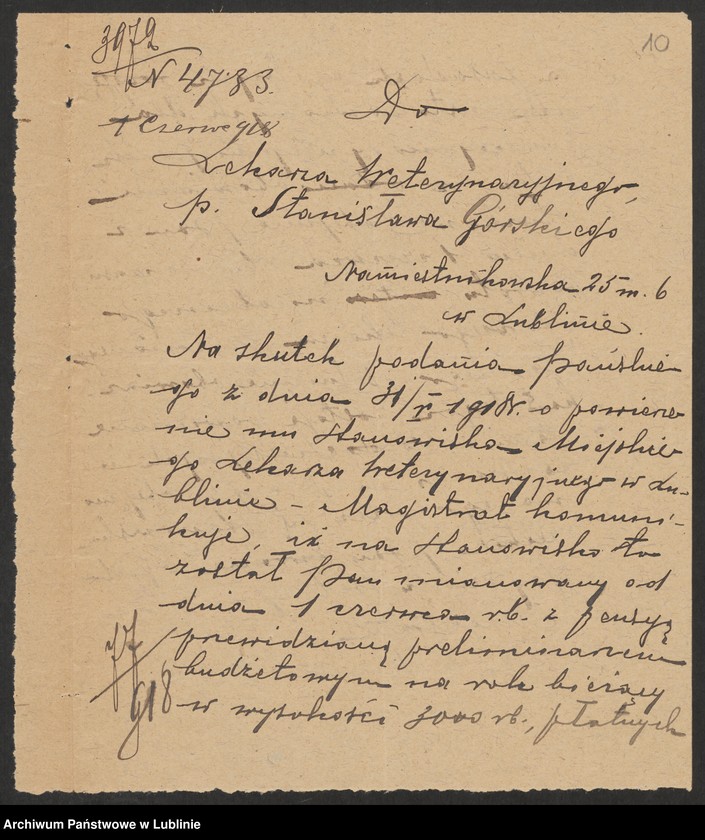 3972
10
N 4733.
1 Czerwc 918
Do
Lekarza Weterynaryjnego,
p. Stanisława Górskiego
Namiestnikowska 25 m. 6
w Lublinie.
Na skutek podania Pańskie-
go z dnia 31/V 1918 r. o powierze-
nie mu stanowiska Miejskie-
go Lekarza Weterynaryjnego w Lu-
blinie – Magistrat komuni-
kuje, iż na stanowisko to
został Pan mianowany od
dnia 1 czerwca r.b. z pensyą
przewidzianą preliminarzem
budżetowym na rok bieżący
w wysokości 3000 rb., płatnych
7/7
918
Archiwum Państwowe w Lublinie